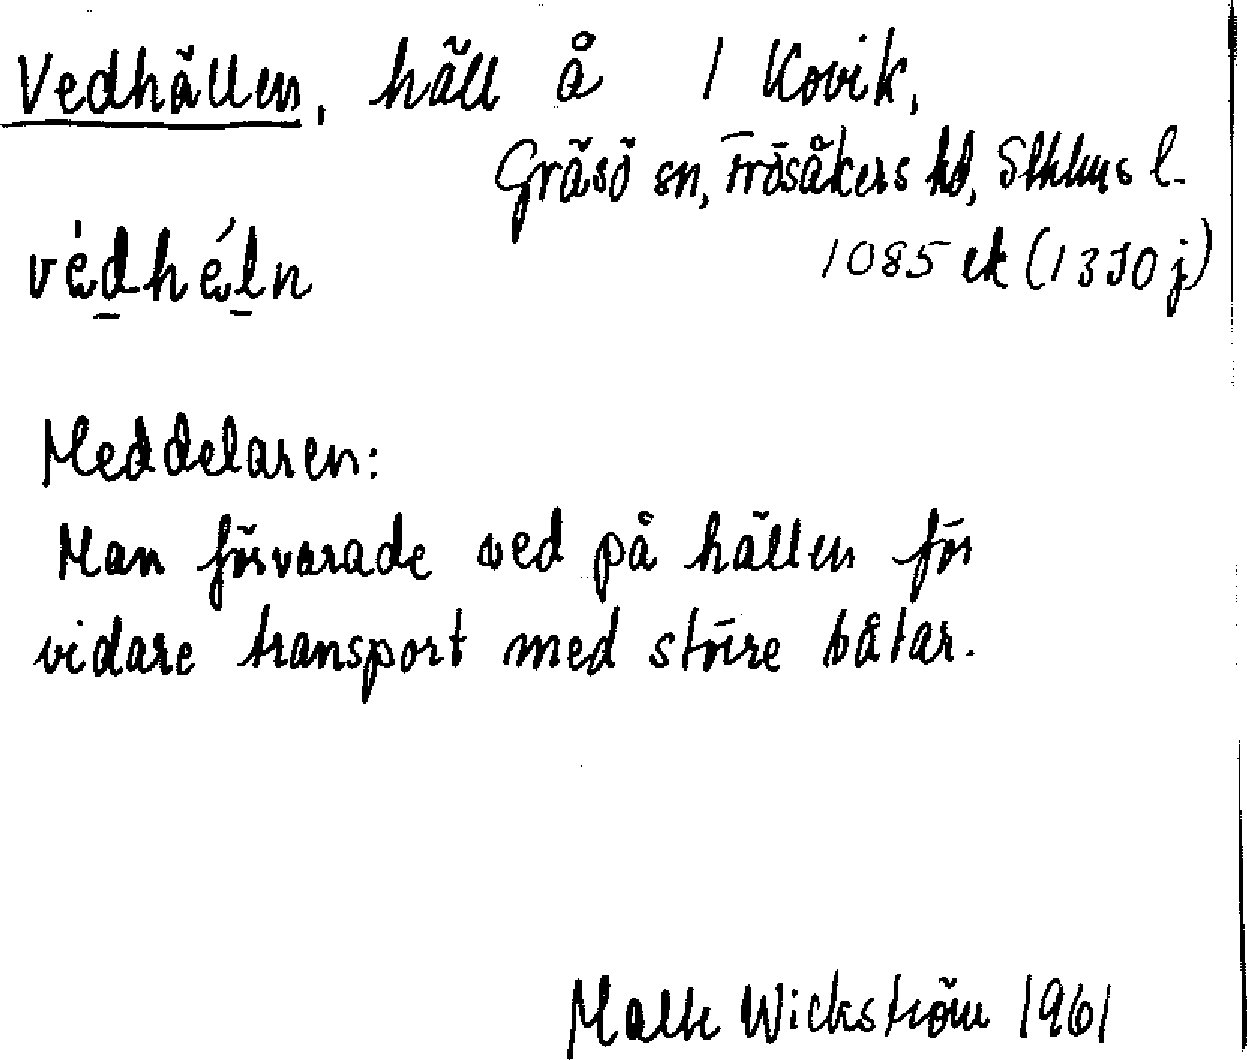 Vedhällen, häll å 1 Kovik,
Gräsö sn, Frösåkers hd, Sthlms l.
védhéln
1085 ek (1330 j)
Meddelaren:
Man förvarade ved på hällen för
vidare transport med större båtar.
Wickström 1961